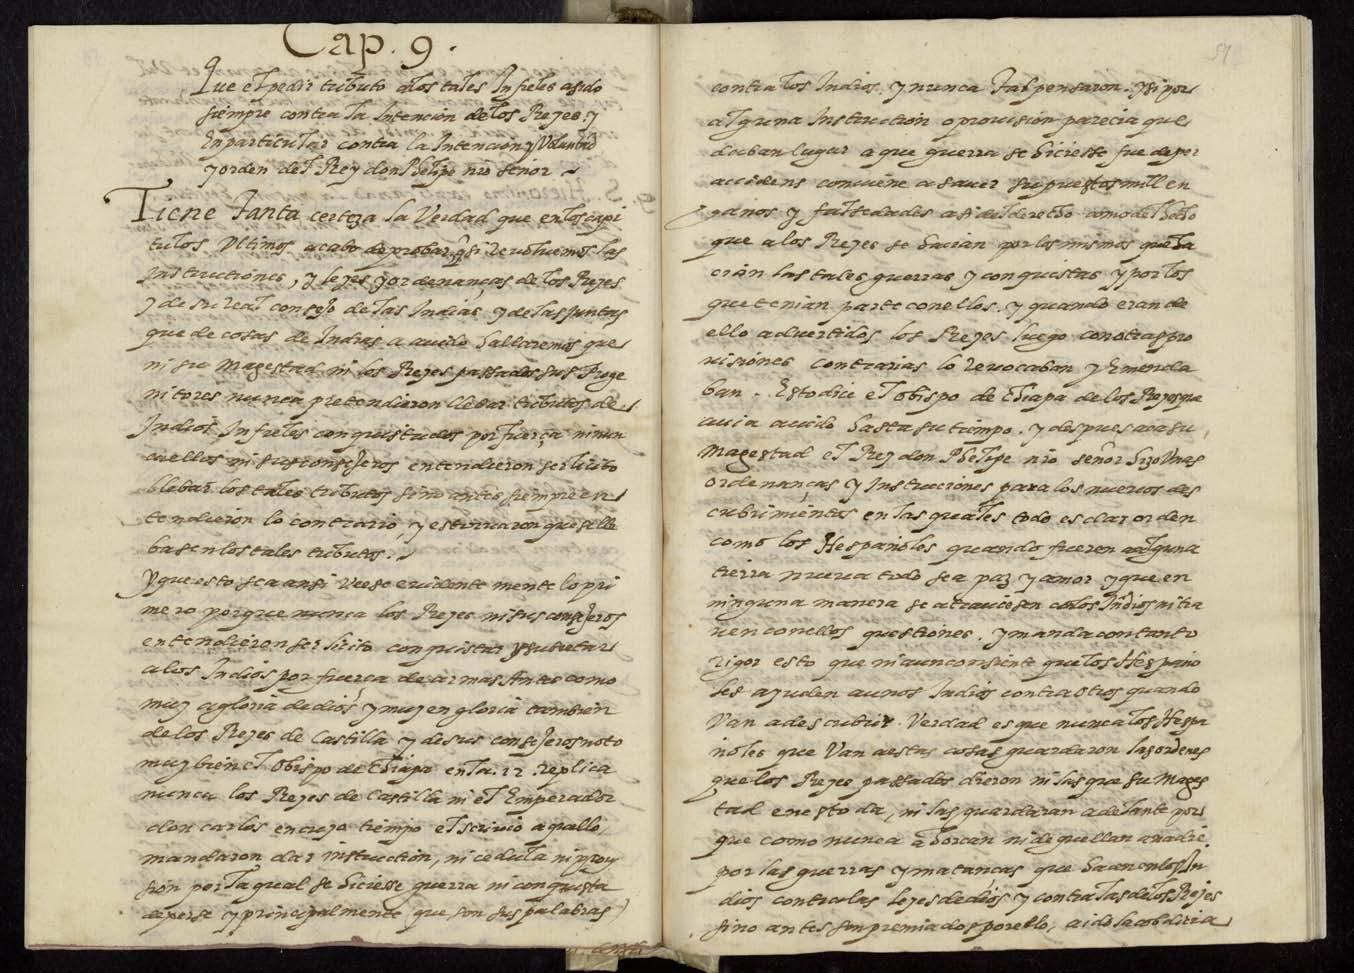 Cap. 9.
Que el pedir tributo a los tales Infieles a sido
siempre contra la Intencion de los Reyes y
En particular contra la Intencion y Voluntad
y orden del Rey don Phelipe nro señor
Tiene tanta certeza la Verdad que en los capi
tulos Ultimos acabo de probar q si revolvemos las
Instructiones, y leyes y ordenanças de los Reyes
y de su real consejo de las Indias, y de las juntas
que de cosas de Indias a auido hallaremos que
ni su Magestad ni los Reyes passados sus Proge
nitores nunca pretendieron llebar tributos de
Indios Infieles conquistados por fuerça ni nun
ca ellos ni sus consejeros entendieron ser licito
llebar los tales tributos sino antes siempre en
tendieron lo contrario, y estorvaron que se lle
basen los tales tributos.
y que esto sea ansi veese evidentemente lo pri
mero porque nunca los Reyes ni sus consejeros
entendieron ser licito conquistar y subjetar
a los Indios por fuerça de armas Antes como
muy a gloria de dios y muy en gloria tambien
de los Reyes de Castilla y de sus consejeros noto
muy bien el Obispo de Chiapa en la .12. replica
nunca los Reyes de Castilla ni el Emperador
don carlos en cuyo tiempo el scrivio aquello,
mandaron dar instruction, ni cedula ni provi
sion por la qual se hiciesse guerra ni conquista
de perse y principalmente que son sus palabras
contra
51
contra los Indios. y nunca tal pensaron. y si por
alguna Instruction o provision parecia que
daban lugar a que guerra se hiciesse fue de per
accidens conviene a saver supuestos mill en
gaños y falsedades asi del derecho como del hecho
que a los Reyes se hacian por los mismos que ha
cian las tales guerras y conquistas y por los
que tenian parte con ellos. y quando eran de
ello advertidos los Reyes luego con otras pro
visiones contrarias lo revocaban y Emenda
ban. Esto dice el Obispo de Chiapa de los Reyes que
avia avido hasta su tiempo. y despues aca su
Magestad el Rey don Phelipe nro señor hizo Unas
ordenanças y Instrucciones para los nuevos des
cubrimientos en las quales todo es clar orden
como los Hespañoles quando fueren a alguna
tierra nueva todo sea paz y amor y que en
ninguna manera se atraviesen con los Indios ni tra
uen con ellos questiones. y manda con tanto
rigor esto que ni aun consiente que los Hespaño
les ayuden a unos Indios contra otros quando
Van a descubrir. Verdad es que nunca los Hespa
ñoles que Van a estas cosas guardaron las ordenes
que los Reyes passados dieron ni las que su Mages
tad en esto da, ni las guardaran adelante por
que como nunca ahorcan ni deguellan a nadie
por las guerras y matanças que hacen en los In
dios contra las leyes de dios y contra las de los Reyes
sino antes son premiados por ello, a ido la cobdicia